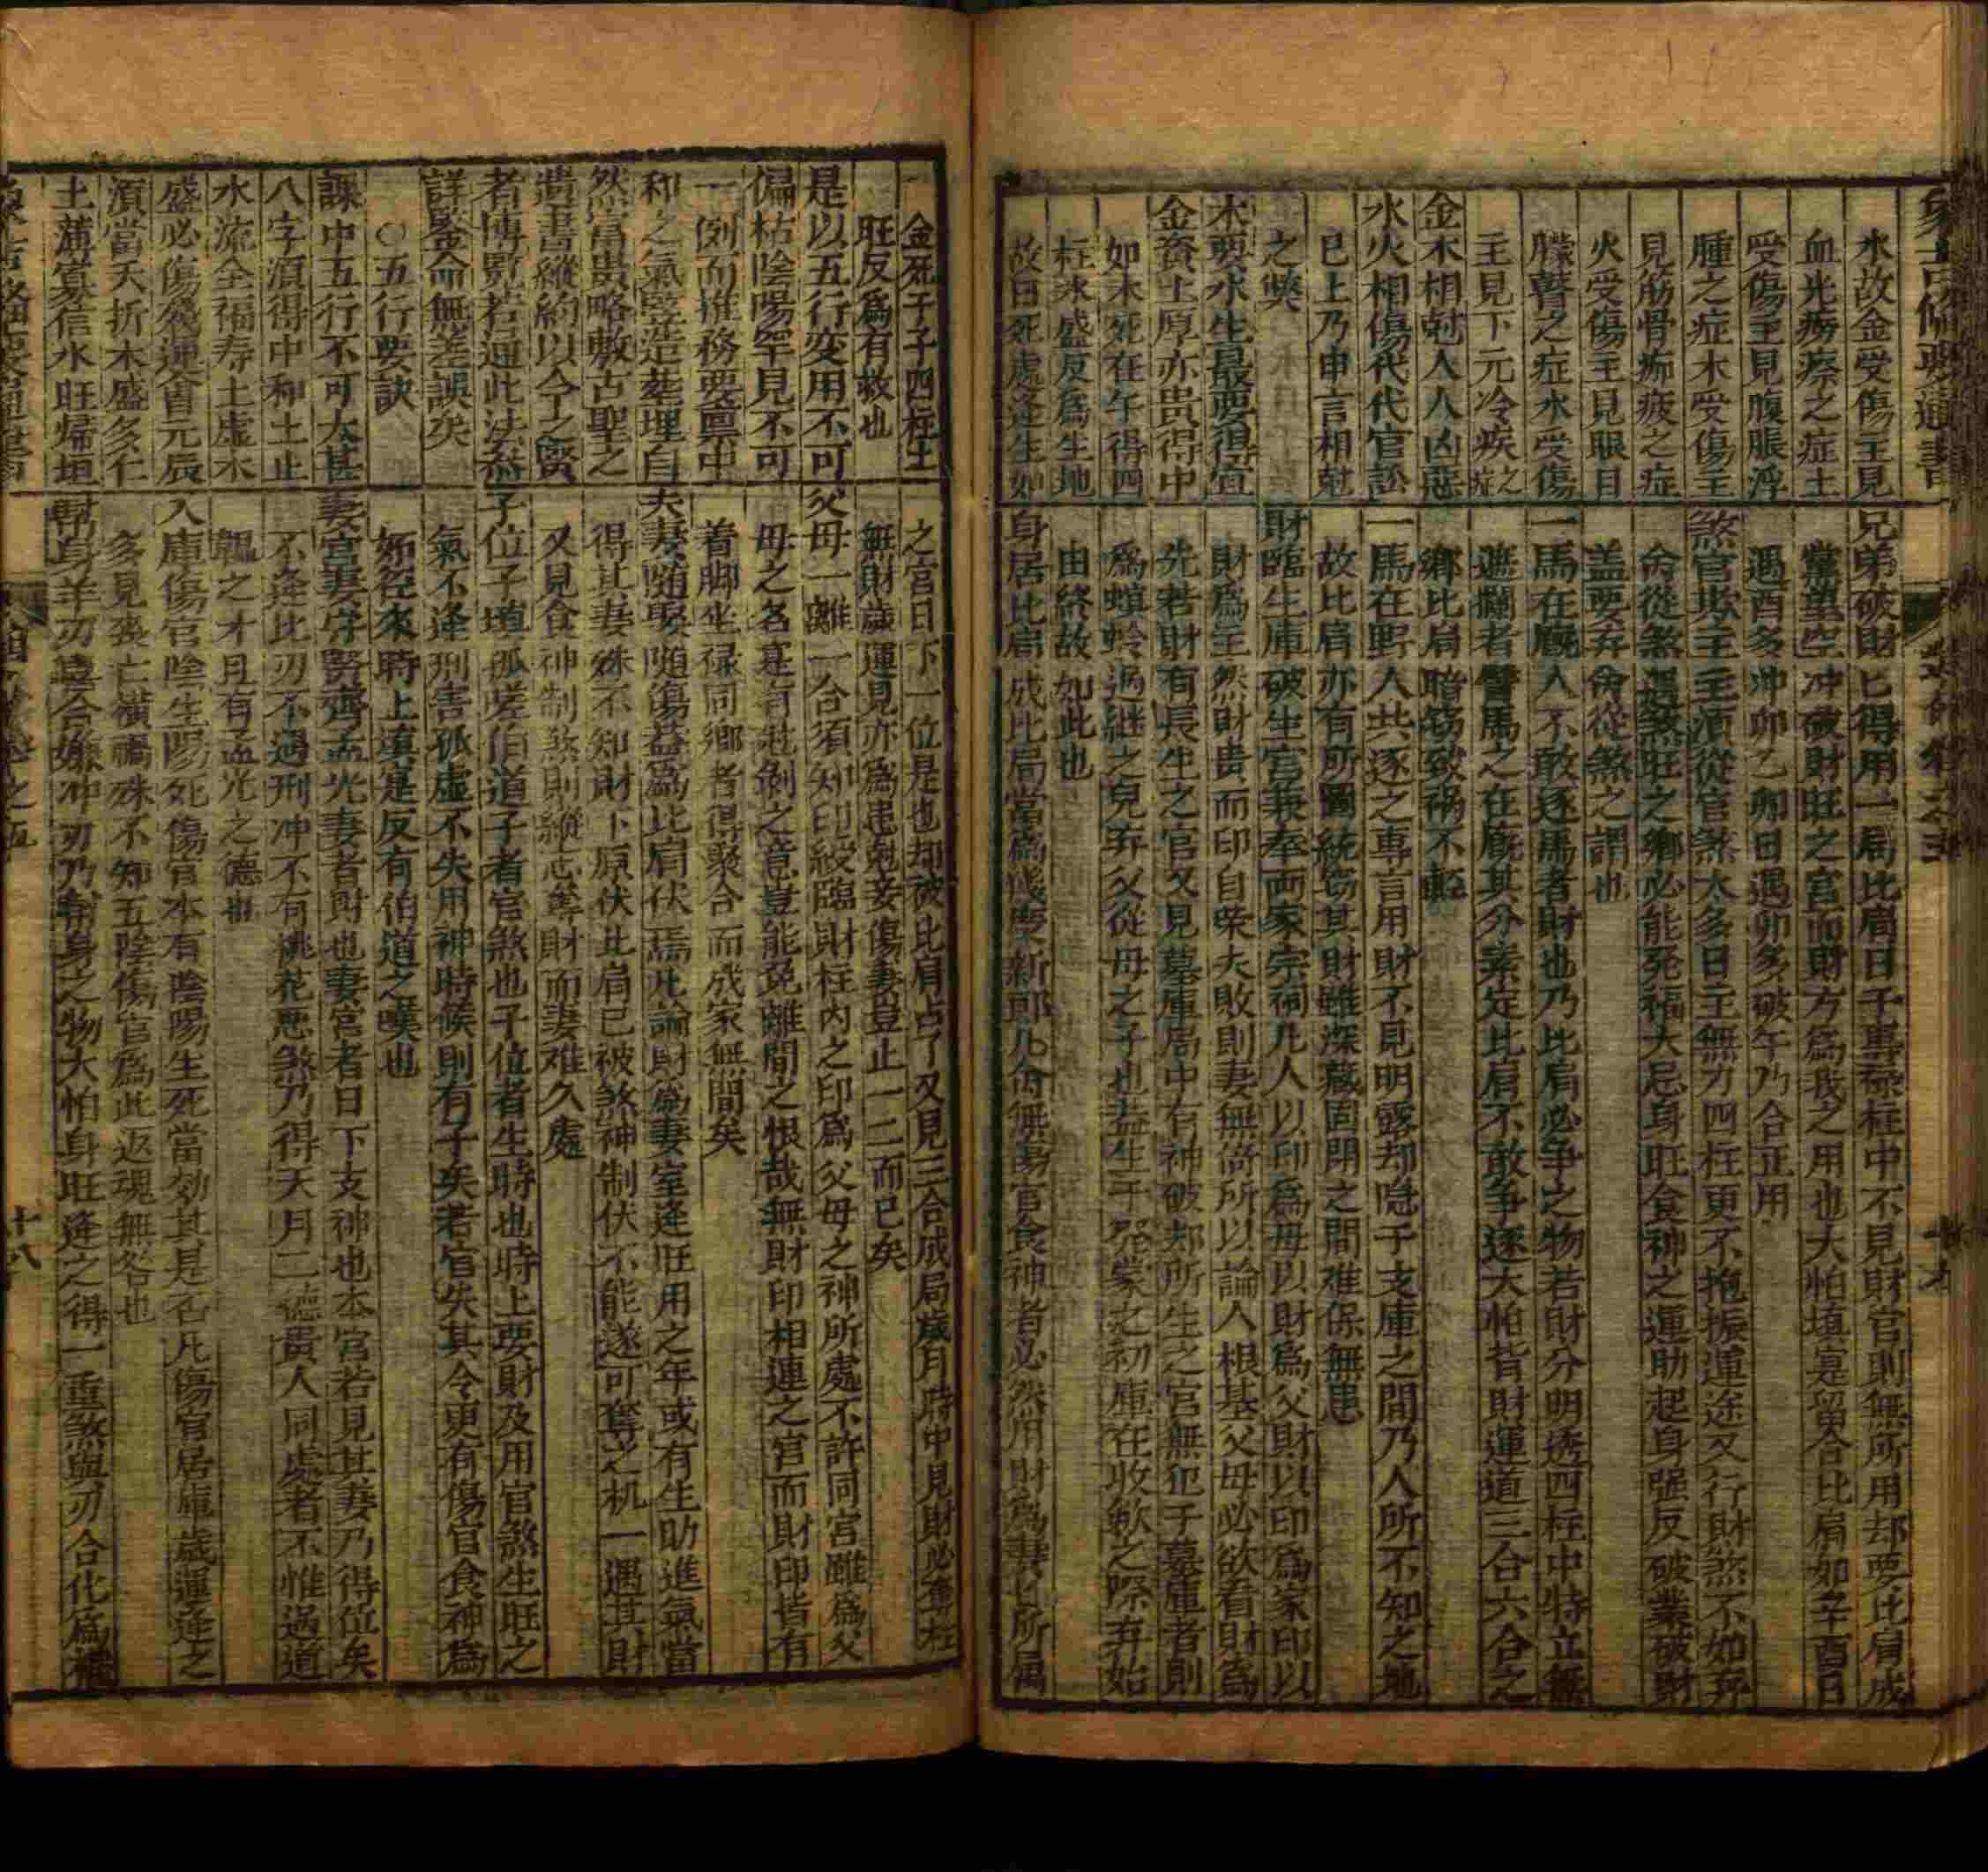 象吉備要通書
水故金受傷主見
血光癆瘵之症土
受傷主見腹脹浮
腫之症木受傷主
見筋骨疲之症
火受傷主見眼目
矇瞽之症水受傷
主見下元冷疾之症
金木相尅人人凶惡
水火相傷代代官訟
已上乃申言相尅
之獘
木要水生最要得宜
金資土厚亦貴得中
如木死在午得四
柱水盛反爲生地
故曰死處逢生如
兄弟破財
匕得用一局比肩日干專祿柱中不見財官則無所用却要比肩成
黨望空冲破財旺之宮而財方爲我之用也大怕填寔留合比肩如辛酉日
遇酉多冲卯乙卯日遇卯多破午乃合正用
煞官攻主
主須從官煞太多日主無力四柱更不抱振運途又行財煞不如弃
命從煞遇煞旺之鄉必能死福大忌身旺食神之運助起身强反破業破財
盖要弃命從煞之謂也
一馬在厩人不敢逐馬者財也乃比肩必爭之物若財分明透四柱中特立無
遮攔者譬馬之在厩其分素定比肩不敢爭逐大怕背財運道三合六合之
鄉比肩暗刼致禍不輕
一馬在野人共逐之專言用財不見明露却隠于支庫之間乃人所不知之地
故比肩亦有所圖統傷其財雖深藏固閉之間难保無患
財臨生庫破生官兼奉兩家宗祠凡人以印爲母以財爲父財以印爲家印以
財爲主然財貴而印自荣夫敗則妻無所以論人根基父母必欲看財爲
先若財有長生之官又見墓庫局中有神破却所生之官無犯于墓庫者則
爲螟蛉過繼之兒弃父從母之子也益生于啓蒙之初庫在收斂之際弃始
由終故如此也
身居比肩成比局當爲新郎凡命無傷官食神者必然用財爲妻匕所属
金死于子四柱土
旺反爲有救也
是以五行変用不可
偏枯陰陽罕見不可
一例而推務要稟中
和之氣竪造塟埋自
然富貴略敷古聖之
遺書縱約以今之賢
者博覽若通此法為
詳鑒命無差誤矣
○五行要訣
課中五行不可太甚
八字須得中和土止
水流全福寿土虛木
盛必傷殘運會元辰
須當夭折木盛多仁
土薄寡信水旺㷌垣
之宮日下一位是也却被比肩占了又見三合成局歲月時中見財必奪柱
無財歲運見亦爲患尅妾傷妻豈止一二而已矣
父母一離一合須知印綬臨財柱内之印爲父母之神所處不許同宮雖爲父
母之名寔有尅剝之意豈能免離間之恨哉無財印相連之宮而財印皆有
着脚坐禄同鄉者得聚合而成家無間矣
夫妻隨娶隨傷益爲比肩伏焉此論財爲妻室逢旺用之年或有生助進氣當
得其妻姝不知財下原伏比肩已被煞神制伏不能遂可奪之机一遇其財
又見食神制煞則縱志奪財而妻难久處
子位子填孤嗟伯道子者官煞也子位者生時也時上要財及用官煞生旺之
氣不逢刑害孤虛不失用神時候則有子矣若官失其令更有傷官食神爲
妬徑來時上填寔反有伯道之嘆也
妻宮妻守賢齊孟光妻者財也妻宮者日下支神也本官若見其妻乃得位矣
不逢比刃不遇刑冲不有桃花惡煞乃得天月二德貴人同處者不惟過道
韞之才且有孟光之德也
入庫傷官陰生陽死傷官本有陰陽生死當劾其是否凡傷官居庫歲運逢之
多見喪亡橫禍殊不知五陰傷官爲此返魂無咎也
幇身羊刃喜合嫌冲刃乃幇身之物大怕身旺逢之得一重煞與刃合化爲權
十八